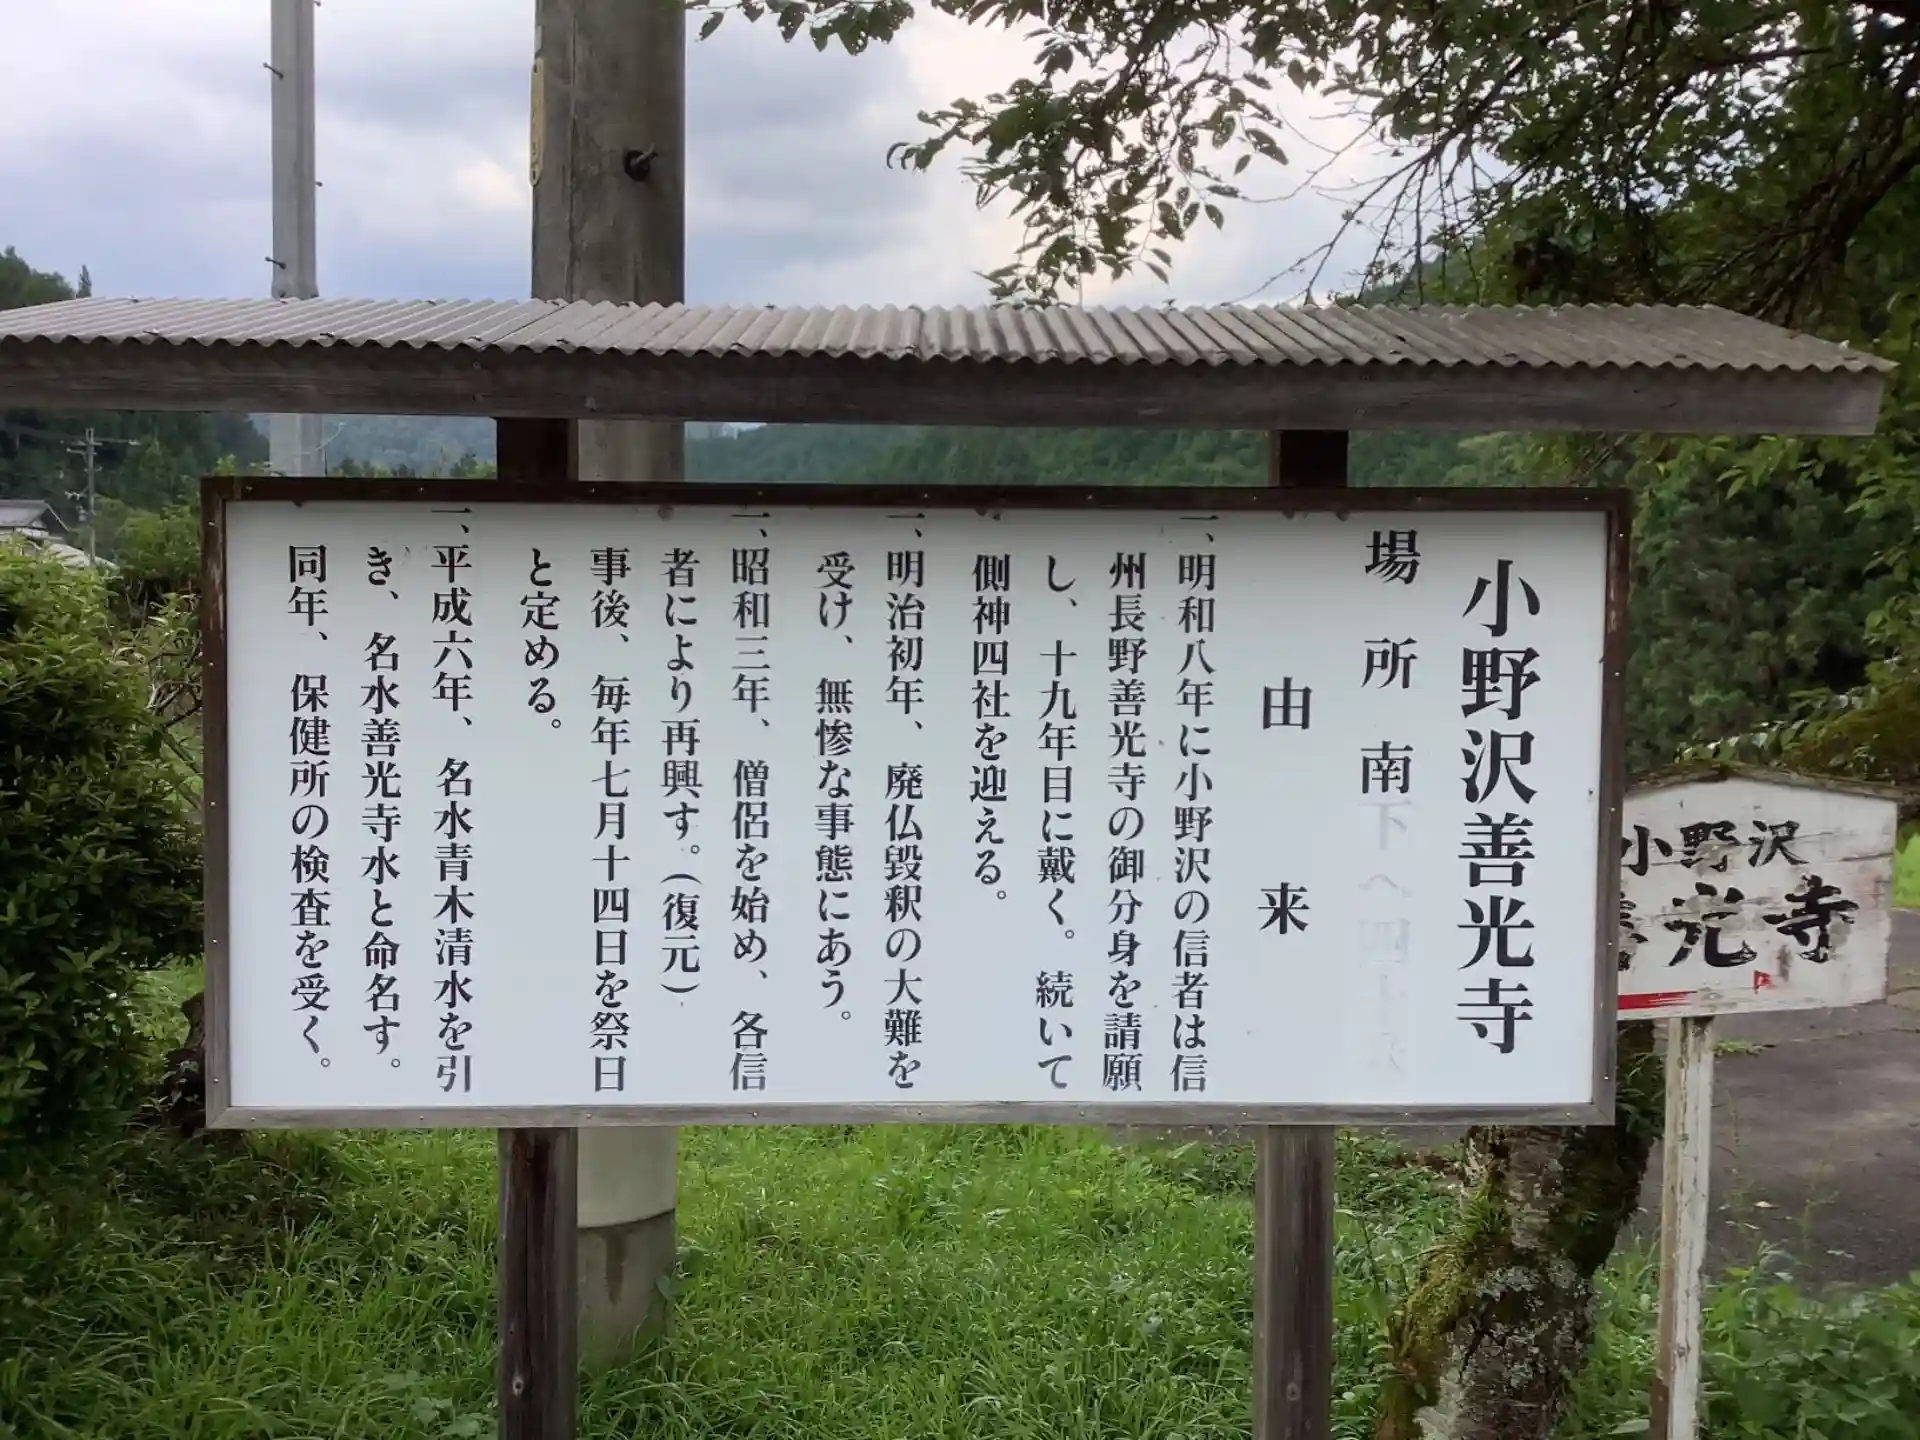 小野沢善光寺
場所 南下へ四十米
由来
一、明和八年に小野沢の信者は信
州長野善光寺の御分身を請願
し、十九年目に戴く。続いて
側神四社を迎える。
一、明治初年、廃仏毀釈の大難を
受け、無惨な事態にあう。
一、昭和三年、僧侶を始め、各信
者により再興す。(復元)
事後、毎年七月十四日を祭日
と定める。
一、平成六年、名水青木清水を引
き、名水善光寺水と命名す。
同年、保健所の検査を受く。
小野沢
善光寺